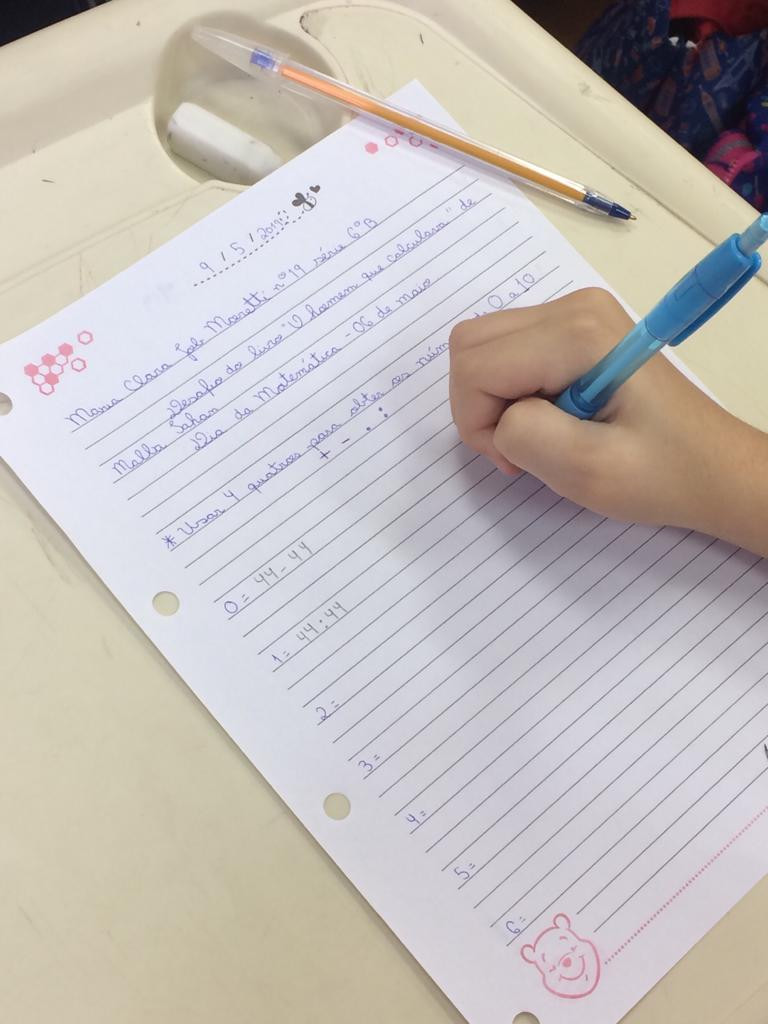 9 / 5 / 2019
Maria Clara Job Moretti nº 19 série 6º B
Desafio do livro "O homem que calculava" de
Malba Tahan
Dia da Matemática - 06 de maio
* Usar 4 quatros para obter os núm de 0 a 10
+ - . :
0 = 44 - 44
1 = 44 : 44
2 =
3 =
4 =
5 =
6 =